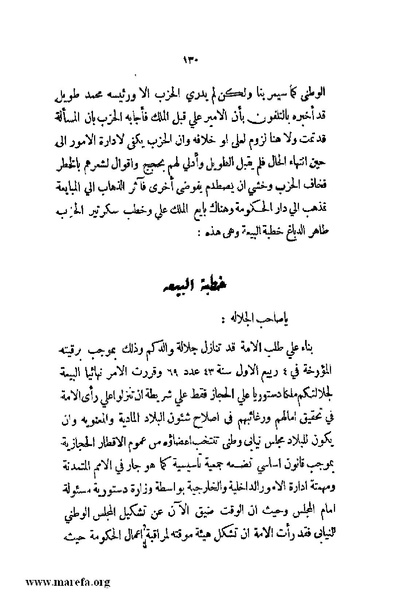 ١٣٠
الوطنى كما سيمر بنا ولكن لم يدرى الحزب الا ورئيسه محمد طويل
قد أخبره بالتلفون بأن الامير علي قبل الملك فأجابه الحزب بان المسألة
قد تمت ولا هنا لزوم لعلى او خلافه وان الحزب يكفى لادارة الامور الى
حين انتهاء الحال فلم يقبل الطويل وأدلي لهم بحجج واقوال لشعرهم بالخطر
فخاف الحزب وخشي ان يصطدم بفوضى أخرى فآثر الذهاب الي المبايعة
فذهب الي دار الحكومة وهناك بايع الملك علي وخطب سكرتير الحزب
طاهر الدباغ خطبة البيعة وهى هذه :
خطبة البيعه
ياصاحب الجلاله :
بناء علي طلب الامة قد تنازل جلالة والدكم وذلك بموجب برقيته
المؤرخة في ٤ ربيع الاول سنة ٤٣ عدد ٦٩ وقررت الامر نهائيا البيعة
لجلالتكم ملكا دستوريا علي الحجاز فقط علي شريطة ان تنزلوا علي رأى الامة
في تحقيق امالهم ورغائبهم فى اصلاح شئون البلاد المادية والمعنويه وان
يكون للبلاد مجلس نيابى وطنى تنتخب اعضاؤه من عموم الاقطار الحجازية
بموجب قانون اساسي تضعه جمعية تأسيسية كما هو جار في الامم المتمدنة
ومهمتة ادارة الامور الداخلية والخارجية بواسطة وزارة دستورية مسئولة
امام المجلس وحيث ان الوقت ضيق الآن عن تشكيل المجلس الوطني
النيابى فقد رأت الامة ان تشكل هيئة موقته لمراقبة اعمال الحكومة حيث
www.marefa.org